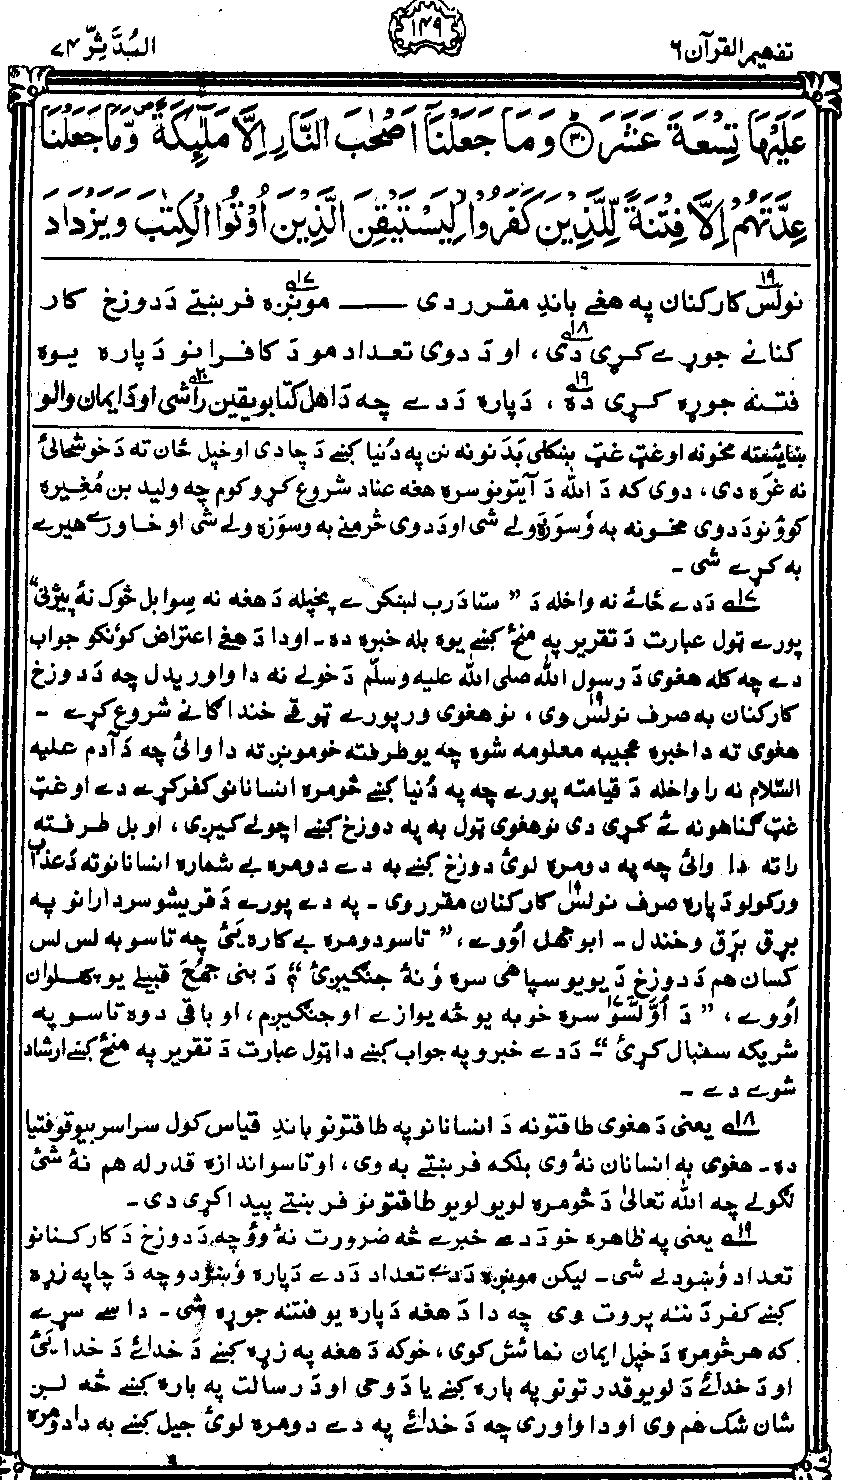 تفهیم القرآن ۶
۱۴۹
المُدَّثِّر ۷۴
عَلَيْهَا تِسْعَةَ عَشَرَ ﴿۳۰﴾ وَمَا جَعَلْنَآ اَصْحٰبَ النَّارِ اِلَّا مَلٰٓئِكَةً ۪ وَّمَا جَعَلْنَا
عِدَّتَهُمْ اِلَّا فِتْنَةً لِّلَّذِيْنَ كَفَرُوْا ۙ لِيَسْتَيْقِنَ الَّذِيْنَ اُوْتُوا الْكِتٰبَ وَيَزْدَادَ
نولس ۱۹ کارکنان په هغے باندِ مقرر دی ــــــ مونږه ۱۷ فرښتے دَ دوزخ کار
کنانے جوړے کړی دی ۱۸، او دَ دوی تعداد مو دَ کافرانو دَ پاره یوه
فتنه جوړه کړی ده ۱۹، دَ پاره دَ دے چه دَ اهل کتابو یقین راشی ۲۰ او دَ ایمان والو
ښایسته مخونه او غټ غټ ښکلی بَدَنونه نن په دُنیا کښے دَ چا دی او خپل ځان ته دَ خوشحالئ
نه غرّه دی، دوی که دَ الله دَ آیتونو سره هغه عناد شروع کړو کوم چه ولید بن مُغیره
کوؤ نو دَ دوی مخونه به وُسوزَوَلے شی او دَ دوی څرمنے به وسوزَولے شی او خاورے هیرے
به کړے شی ۔
۱۷ دَ دے ځائے نه واخله دَ ” ستا دَ رب لښکرے پخپله دَ هغه نه سِوا بل څوک نۀ پیژنی“
پورے ټول عبارت دَ تقریر په منځ کښے یوه بله خبره ده ۔ او دا دَ هغے اعتراض کوُنکو جواب
دے چه کله هغوی دَ رسول الله صلی الله علیه وسلّم دَ خولے نه دا واوریدل چه دَ دوزخ
کارکنان به صرف نولس ۱۹ وی، نو هغوی ورپورے ټوقے خندا گانے شروع کړے ۔
هغوی ته دا خبره عجیبه معلومه شوه چه یو طرفته خو مونږ ته دا وائی چه دَ آدم علیه
السّلام نه را واخله دَ قیامته پورے چه په دُنیا کښے څومره انسانانو کفر کړے دے او غټ
غټ گناهونه ئے کړی دی نو هغوی ټول به په دوزخ کښے اچولے کیږی، او بل طرفته
راته دا وائی چه په دومره لوئ دوزخ کښے به دے دومره بے شماره انسانانو ته دَ عذاب
ورکولو دَ پاره صرف نولس ۱۹ کارکنان مقرر وی ۔ په دے پورے دَ قریشو سردارانو په
بړق بړق وخندل ۔ ابوجهل اووے، ” تاسو دومره بے کاره یَئ چه تاسو به لس لس
کسان هم دَ دوزخ دَ یو یو سپاهی سره وُ نۀ جنګیږئ؟“ دَ بنی جُمَح قبیلے یو پهلوان
اووے، ” دَ اوُولَسو ۱۷ سره خو به یو څه یوازے او جنګیږم، او باقی دوه تاسو په
شریکه سنبال کړئ “ ۔ دَ دے خبرو په جواب کښے دا ټول عبارت دَ تقریر په منځ کښے ارشاد
شوے دے ۔
۱۸ یعنی دَ هغوی طاقتونه دَ انسانانو په طاقتونو باندِ قیاس کول سراسر بیوقوفتیا
ده ۔ هغوی به انسانان نۀ وی بلکه فرښتے به وی، او تاسو اندازه قدر له هم نۀ شئ
لګولے چه الله تعالیٰ دَ څومره لویو لویو طاقتونو فرښتے پیدا کړی دی ۔
۱۹ یعنی په ظاهره خو دَ دے خبرے څه ضرورت نۀ وؤ چه دَ دوزخ دَ کارکنانو
تعداد وُښودلے شی ۔ لیکن مونږه دَ دے تعداد دَ دے دَ پاره وُښودو چه دَ چا په زړه
کښے کفر دَننه پروت وی چه دا دَ هغه دَ پاره یو فتنه جوړه شی ۔ داسے سړے
که هر څومره دَ خپل ایمان نمائش کوی، خو که دَ هغه په زړه کښے دَ خدائے دَ خدایئ
او دَ خدائے دَ لویو قدرتونو په باره کښے یا دَ وحی او دَ رسالت په باره کښے څه لږ
شان شک هم وی او دا واوری چه دَ خدائے په دے دومره لوئ جیل کښے به دا دومره